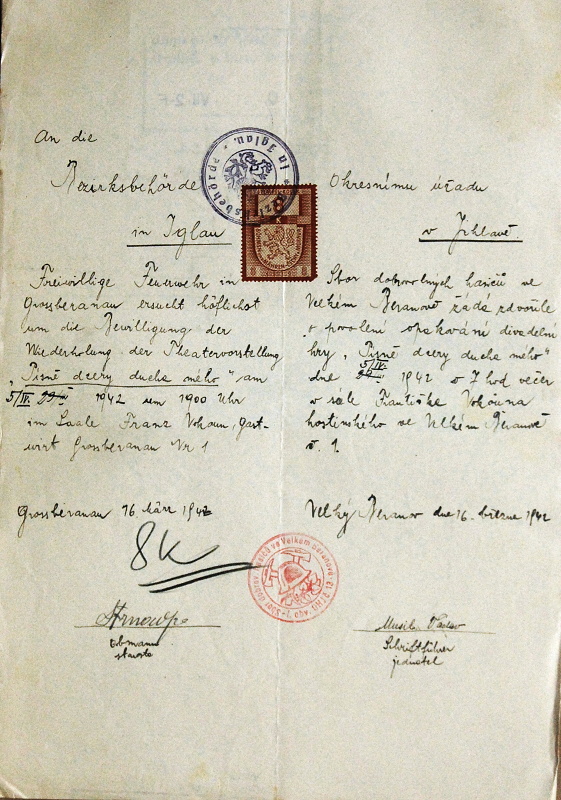 An die
Bezirksbehörde
in Iglau
Freiwillige Feuerwehr in
Grossberanau ersucht höflichst
um die Bewilligung der
Wiederholung der Theatervorstellung
„Písně dcery ducha mého" am
5/IV. 1942 um 1900 Uhr
im Saale Franz Vokoun, Gast-
wirt Grossberanau Nr 1
Grossberanau 16 März 1942
Okresnímu úřadu
v Jihlavě.
Sbor dobrovolných hasičů ve
Velkém Beranově žádá zdvořile
o povolení opakování divadelní
hry „Písně dcery ducha mého"
5/IV.
dne 1942 o 7 hod večer
v sále Františka Vokouna
hostinského ve Velkém Beranově
č. 1.
Velký Beranov dne 16. března 1942
8K
8
K
8 8
in Iglau
Obmann
starosta
Musil Václav
Schriftführer
jednatel